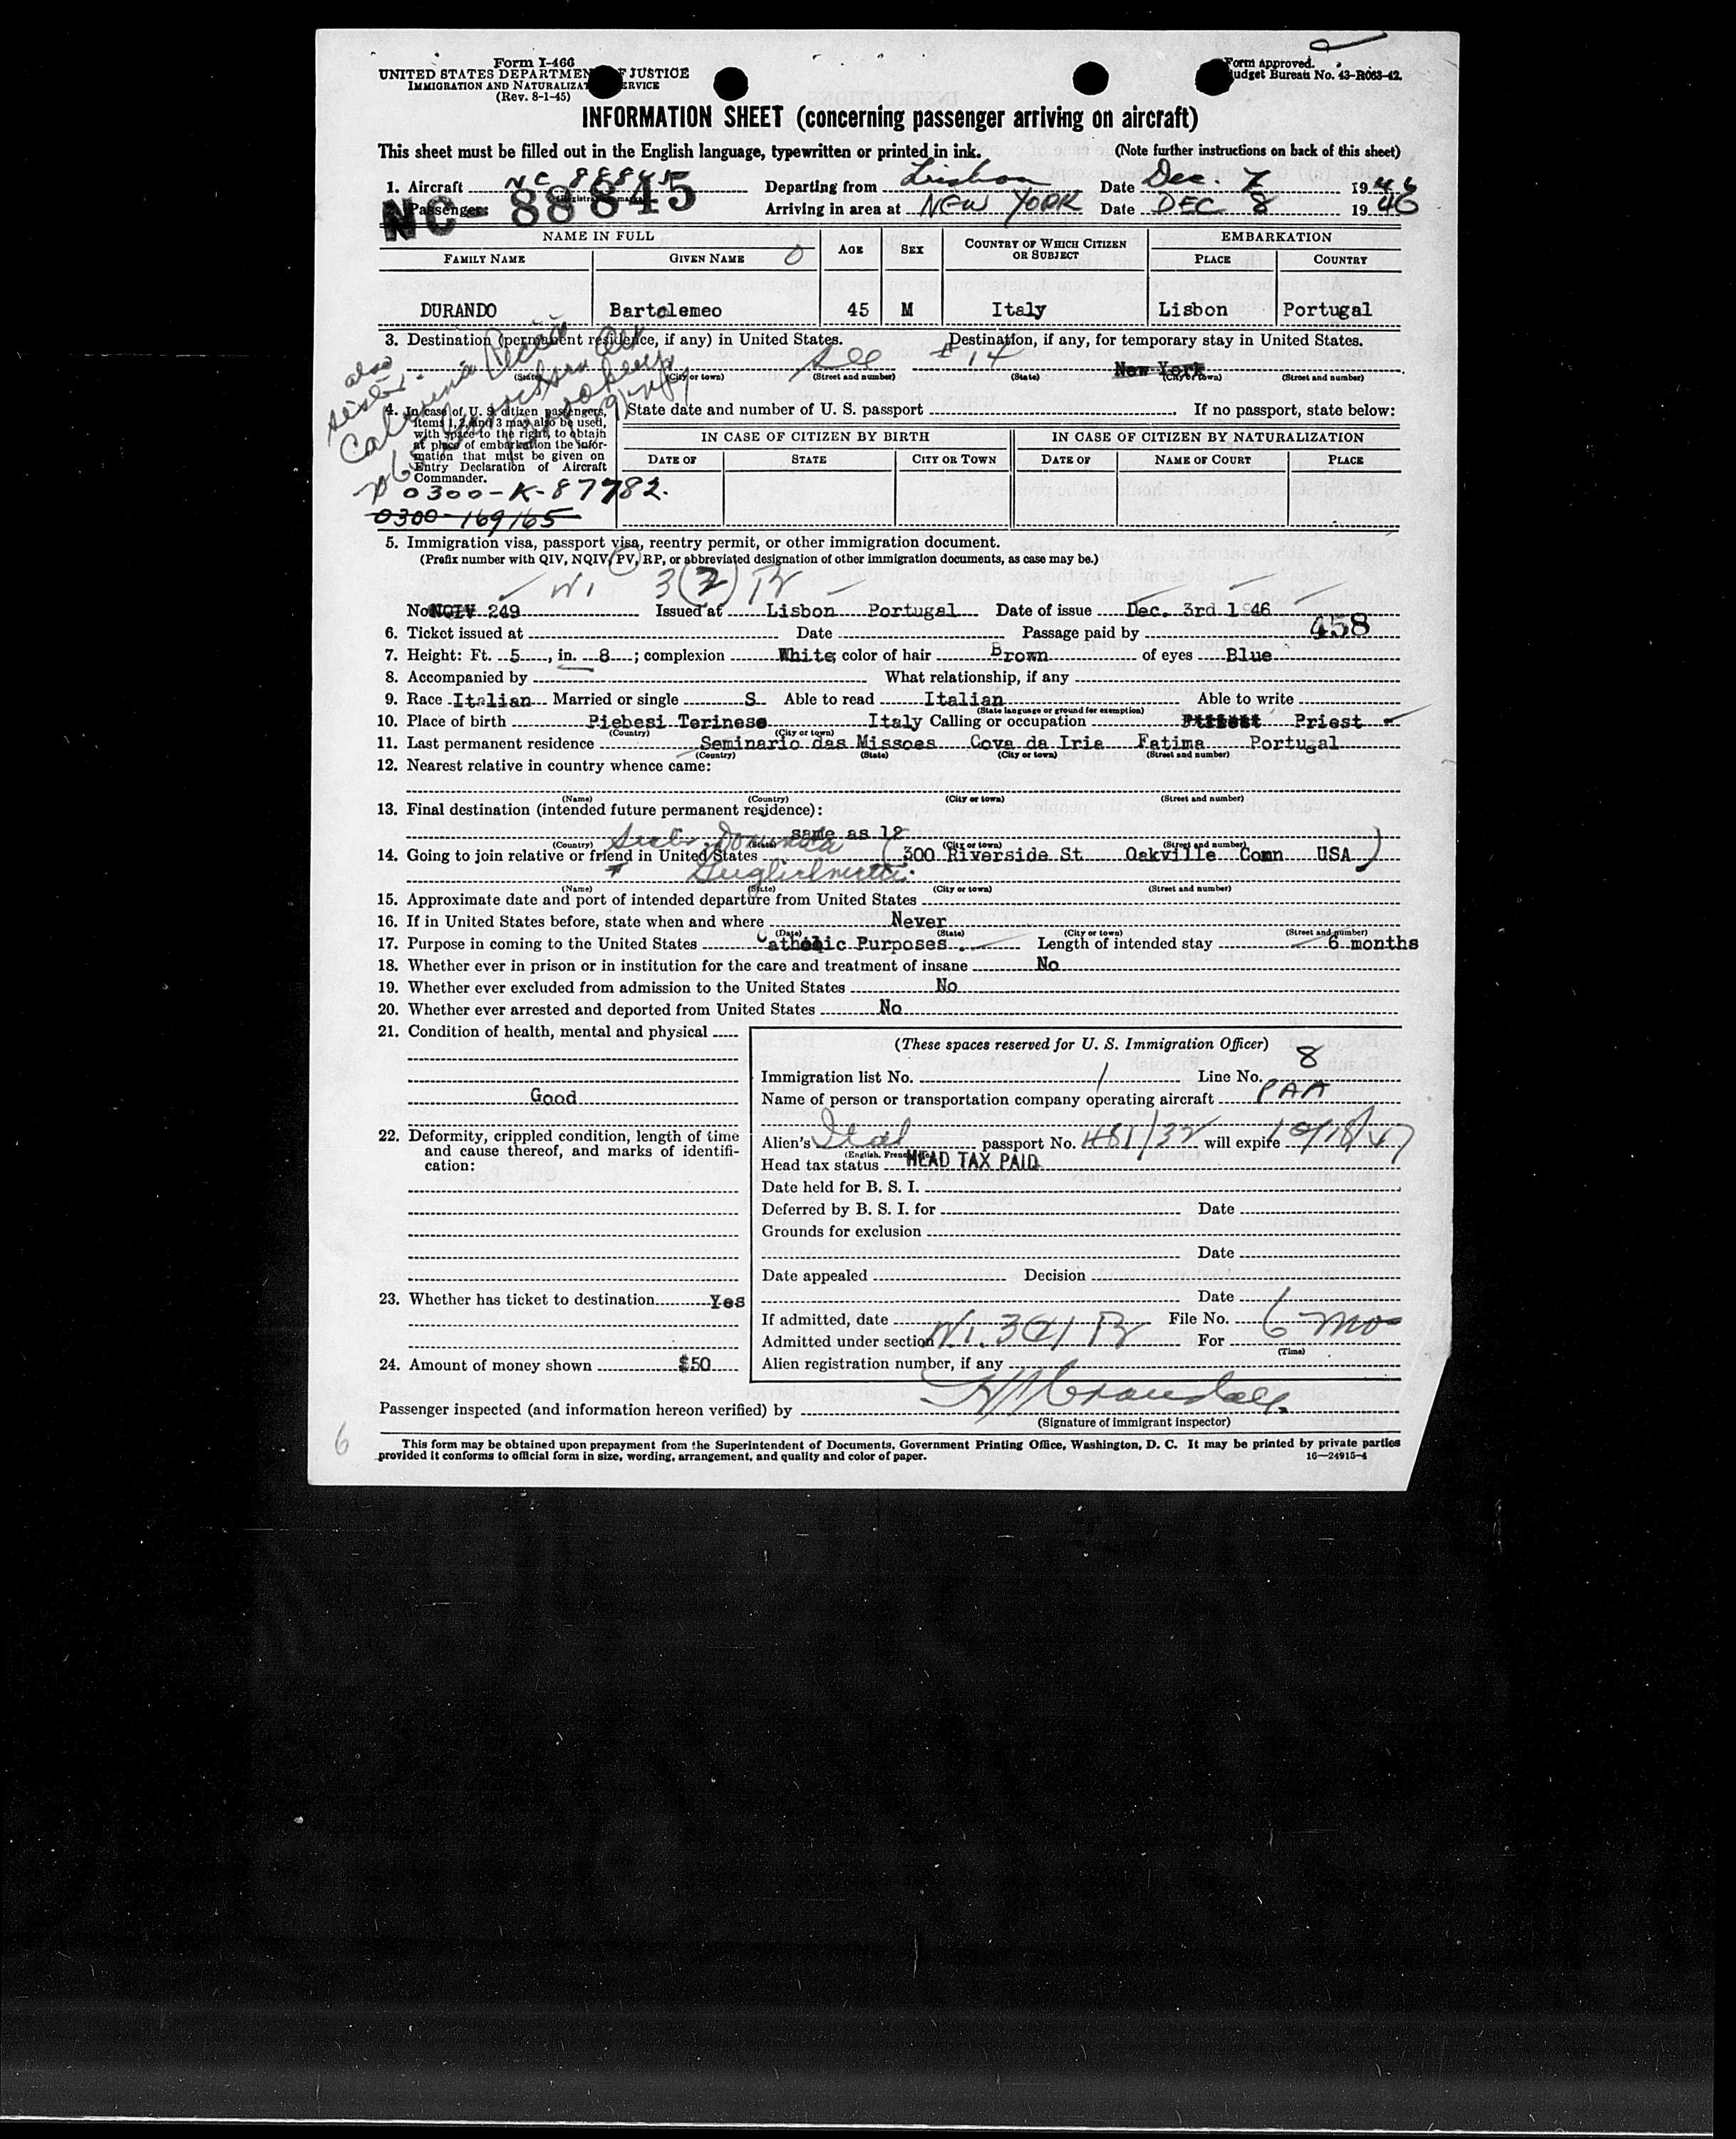 Form I-466
UNITED STATES DEPARTMENT OF JUSTICE
IMMIGRATION AND NATURALIZATION SERVICE
(Rev. 8-1-45)
Form approved.
Budget Bureau No. 43-R063-42.
INFORMATION SHEET (concerning passenger arriving on aircraft)
This sheet must be filled out in the English language, typewritten or printed in ink. (Note further instructions on back of this sheet)
1. Aircraft NC 88845 Departing from Lisbon Date Dec. 7 1946
NC- 88845
Passenger: Arriving in area at NEW YORK Date DEC 8 1946
NAME IN FULL AGE SEX COUNTRY OF WHICH CITIZEN OR SUBJECT EMBARKATION
FAMILY NAME GIVEN NAME PLACE COUNTRY
DURANDO Bartolemeo 45 M Italy Lisbon Portugal
3. Destination (permanent residence, if any) in United States. Destination, if any, for temporary stay in United States.
See #14 New York
(State) (City or town) (Street and number) (State) (City or town) (Street and number)
also
sister
4. In case of U. S. citizen passengers, items 1, 2, and 3 may also be used, with space to the right, to obtain at place of embarkation the information that must be given on Entry Declaration of Aircraft Commander.
State date and number of U. S. passport If no passport, state below:
IN CASE OF CITIZEN BY BIRTH IN CASE OF CITIZEN BY NATURALIZATION
DATE OF STATE CITY OR TOWN DATE OF NAME OF COURT PLACE
0300-K-87782.
0300-169165
5. Immigration visa, passport visa, reentry permit, or other immigration document.
(Prefix number with QIV, NQIV, PV, RP, or abbreviated designation of other immigration documents, as case may be.)
3(2)
No. NQIV 249 Issued at Lisbon Portugal Date of issue Dec. 3rd 1 46
6. Ticket issued at Date Passage paid by 458
7. Height: Ft. 5, in. 8; complexion White; color of hair Brown of eyes Blue
8. Accompanied by What relationship, if any
9. Race Italian Married or single S Able to read Italian Able to write
(State language or ground for exemption)
10. Place of birth Piebesi Terinese Italy Calling or occupation Priest
(Country) (City or town)
11. Last permanent residence Seminario das Missoes Cova da Iria Fatima Portugal
(Country) (State) (City or town) (Street and number)
12. Nearest relative in country whence came:
(Name) (Country) (City or town) (Street and number)
13. Final destination (intended future permanent residence):
same as 12
(Country) (State) (City or town) (Street and number)
14. Going to join relative or friend in United States (300 Riverside St Oakville Conn USA)
(Name) (State) (City or town) (Street and number)
15. Approximate date and port of intended departure from United States
16. If in United States before, state when and where Never
(Date) (State) (City or town) (Street and number)
17. Purpose in coming to the United States Catholic Purposes Length of intended stay 6 months
18. Whether ever in prison or in institution for the care and treatment of insane No
19. Whether ever excluded from admission to the United States No
20. Whether ever arrested and deported from United States No
21. Condition of health, mental and physical
Good
22. Deformity, crippled condition, length of time and cause thereof, and marks of identification:
23. Whether has ticket to destination Yes
24. Amount of money shown $50
(These spaces reserved for U. S. Immigration Officer)
Immigration list No. 1 Line No. 8
Name of person or transportation company operating aircraft PAA
Alien's Ital passport No. 481/32 will expire 10/18/47
Head tax status HEAD TAX PAID
Date held for B. S. I.
Deferred by B. S. I. for Date
Grounds for exclusion
Date
Date appealed Decision
Date
If admitted, date File No.
Admitted under section 3(2) For 6 mos
(Time)
Alien registration number, if any
Passenger inspected (and information hereon verified) by
(Signature of immigrant inspector)
6
This form may be obtained upon prepayment from the Superintendent of Documents, Government Printing Office, Washington, D. C. It may be printed by private parties
provided it conforms to official form in size, wording, arrangement, and quality and color of paper. 16—24915-4